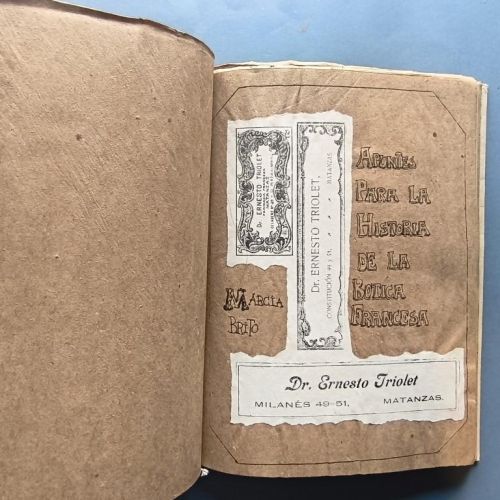 Dr. ERNESTO TRIOLET
Dr. ERNESTO TRIOLET,
CONSTITUCIÓN 49 y 51. MATANZAS
APUNTES
PARA LA
HISTORIA
DE LA
BOTICA
FRANCESA
MÁRCIA
BRITO
Dr. Ernesto Triolet
MILANÉS 49-51, MATANZAS.